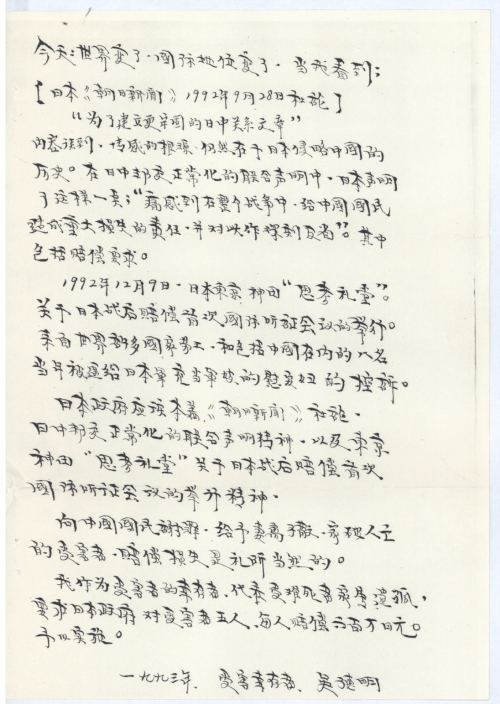 今天:世界变了.國际地位变了.当我看到:
[日本《朝日新闻》1992年9月28日社论]
“为了建立更牢固的日中关系文章”
内容谈到,情感的根源,仍然在于日本侵略中國的
历史。在日中邦交正常化的联合声明中,日本声明
了这样一条:“痛感到在整个战争中,给中國國民
造成重大损失的责任,并对此作深刻反省”。其中
包括賠偿要求。
1992年12月9日,日本東京神田“思考礼堂”。
关于日本战后賠偿首次國际听証会议的举行。
来自世界许多國家劳工,和包括中國在内的八名
当年被迫给日本軍充当軍妓的慰安妇的控訴。
日本政府应该本着《朝日新闻》社论,
日中邦交正常化的联合声明精神,以及東京
神田“思考礼堂”关于日本战后賠偿首次
國际听証会议的举行精神。
向中國國民謝罪,给予妻離子散,家破人亡
的受害者,賠偿损失是礼所当然的。
我作为受害者的幸存者,代表受难死者家属遗孤,
要求日本政府对受害者五人,每人賠偿六百万日元。
予以实施。
一九九三年. 受害幸存者、吴